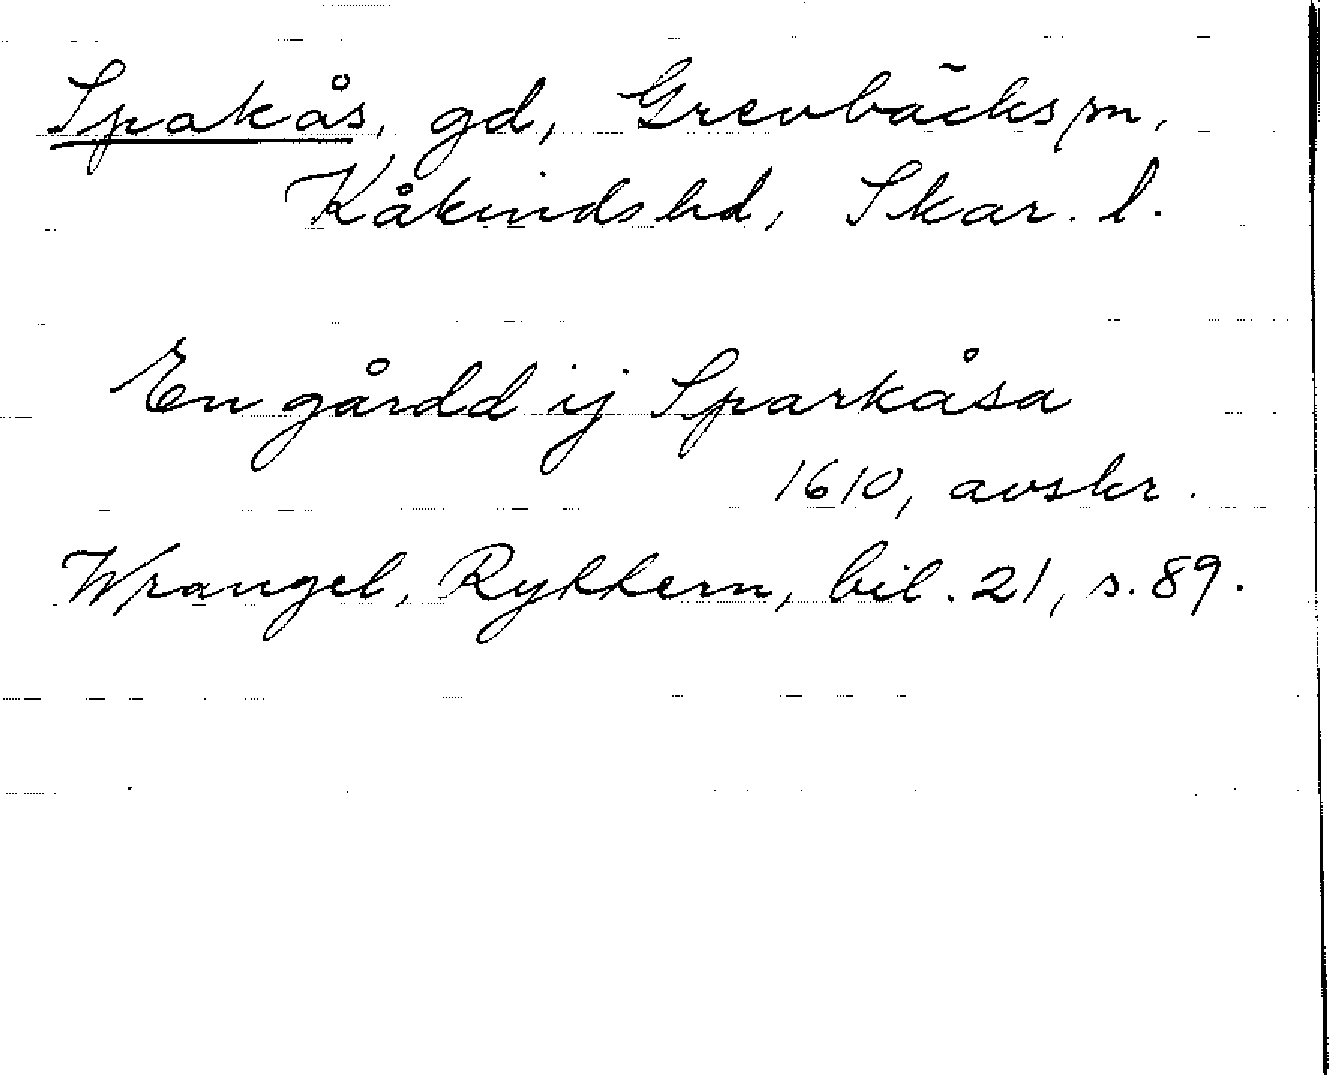 Spakås, gd, Grevbäcks sn,
Kåkinds hd, Skar. l.
En gårdd ij Sparkåsa
1610, avskr.
Wrangel, Ryttern, bil. 21, s. 89.